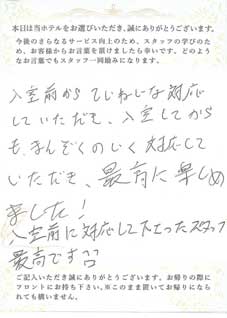 本日は当ホテルをお選びいただき、誠にありがとうございます。
今後のさらなるサービス向上のため、スタッフの学びのため、お客様からお言葉を頂けましたら幸いです。どのようなお言葉でもスタッフ一同励みになります。
入室前からていねいな対応
していただき、入室してから
も、まんぞくのいく対応して
いただき、最高に楽しめ
ました！
入室前に対応して下さったスタッフ
最高です
ご記入いただき誠にありがとうございます。お帰りの際に
フロントにお持ち下さい。※このまま置いてお帰りになられても構いません。